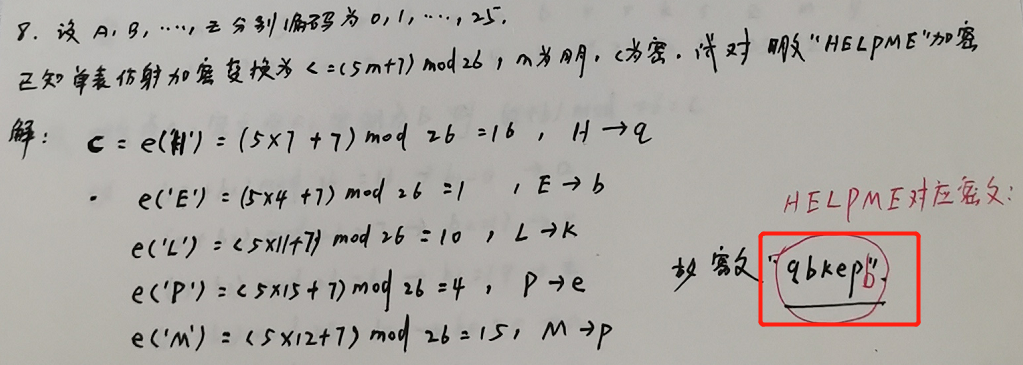 8. 设 A, B, ..., Z 分别编码为 0, 1, ..., 25.
已知单表仿射加密变换为 c=(5m+7) mod 26, m为明, c为密. 试对 明文"HELPME"加密
解: c = e('H') = (5×7+7) mod 26 = 16, H→q
e('E') = (5×4+7) mod 26 = 1, E→b
e('L') = (5×11+7) mod 26 = 10, L→k
e('P') = (5×15+7) mod 26 = 4, P→e
e('M') = (5×12+7) mod 26 = 15, M→p
HELPME对应密文:
故 密文"qbkepb".